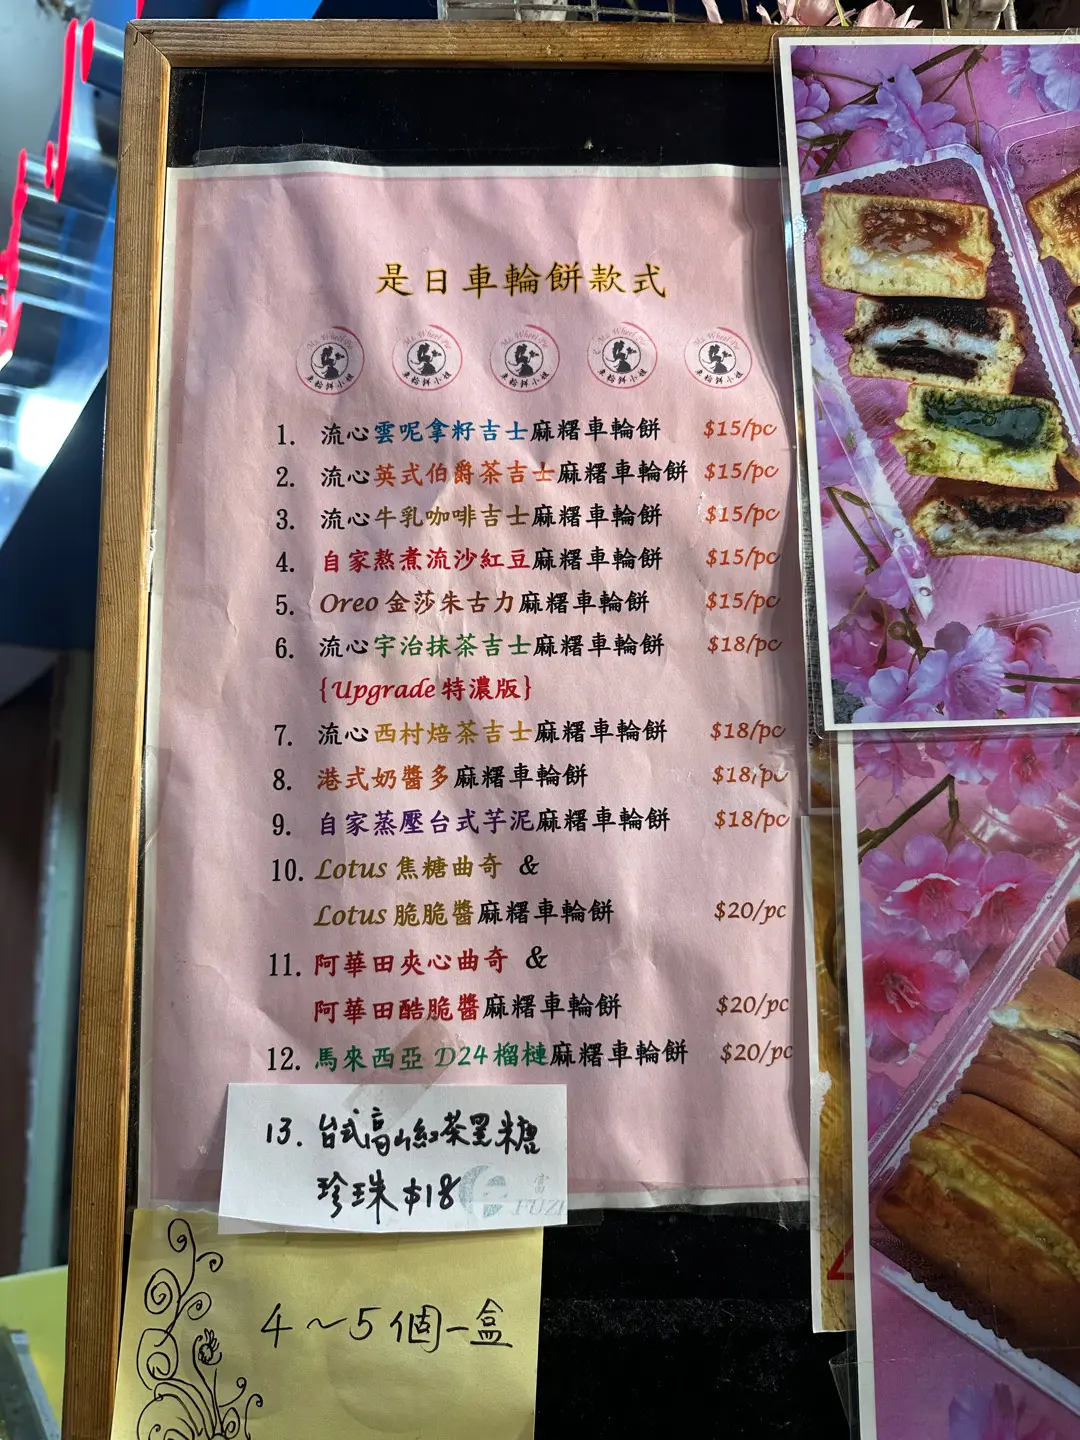 是日車輪餅款式
Ms. Wheel Pie Ms. Wheel Pie Ms. Wheel Pie Ms. Wheel Pie Ms. Wheel Pie
車輪餅小姐 車輪餅小姐 車輪餅小姐 車輪餅小姐 車輪餅小姐
1. 流心雲呢拿籽吉士麻糬車輪餅 $15/pc
2. 流心英式伯爵茶吉士麻糬車輪餅 $15/pc
3. 流心牛乳咖啡吉士麻糬車輪餅 $15/pc
4. 自家熬煮流沙紅豆麻糬車輪餅 $15/pc
5. Oreo 金莎朱古力麻糬車輪餅 $15/pc
6. 流心宇治抹茶吉士麻糬車輪餅 $18/pc
{Upgrade 特濃版}
7. 流心西村焙茶吉士麻糬車輪餅 $18/pc
8. 港式奶醬多麻糬車輪餅 $18/pc
9. 自家蒸壓台式芋泥麻糬車輪餅 $18/pc
10. Lotus 焦糖曲奇 &
Lotus 脆脆醬麻糬車輪餅 $20/pc
11. 阿華田夾心曲奇 &
阿華田酷脆醬麻糬車輪餅 $20/pc
12. 馬來西亞 D24 榴槤麻糬車輪餅 $20/pc
13. 台式高山紅茶黑糖
珍珠 $18
富
FUZI
4～5個一盒